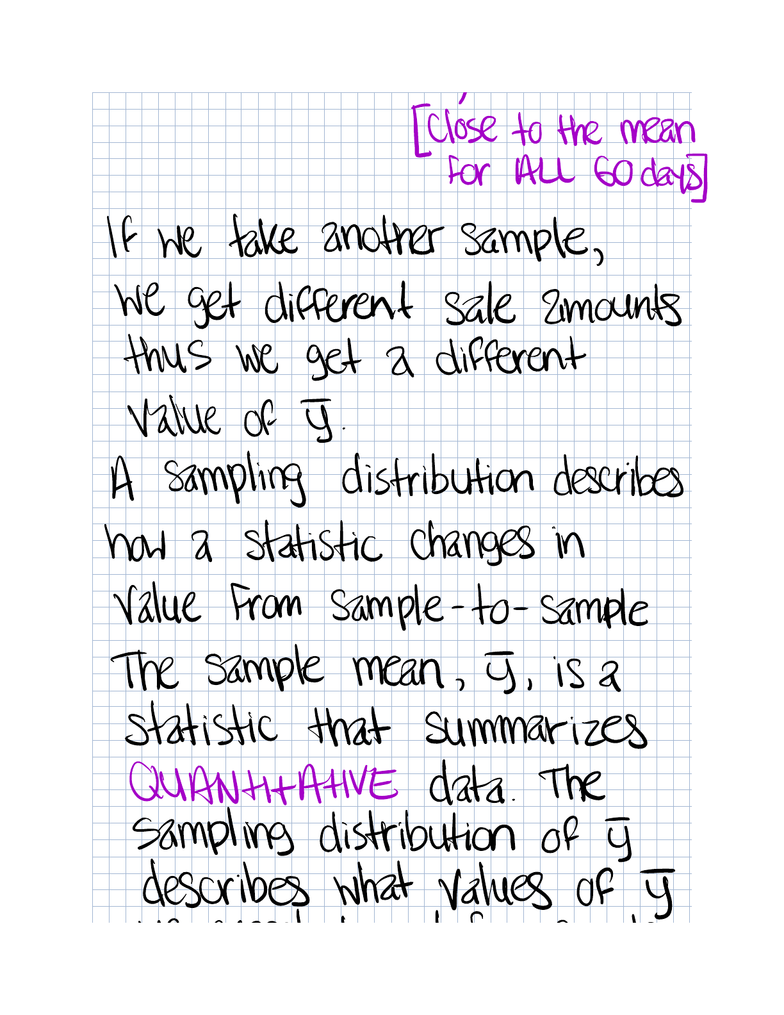 [Close to the mean
for ALL 60 days]
If we take another sample,
we get different sale amounts
thus we get a different
value of ȳ.
A sampling distribution describes
how a statistic changes in
value from sample-to-sample
The sample mean, ȳ, is a
statistic that summarizes
QUANTITATIVE data. The
sampling distribution of ȳ
describes what values of ȳ